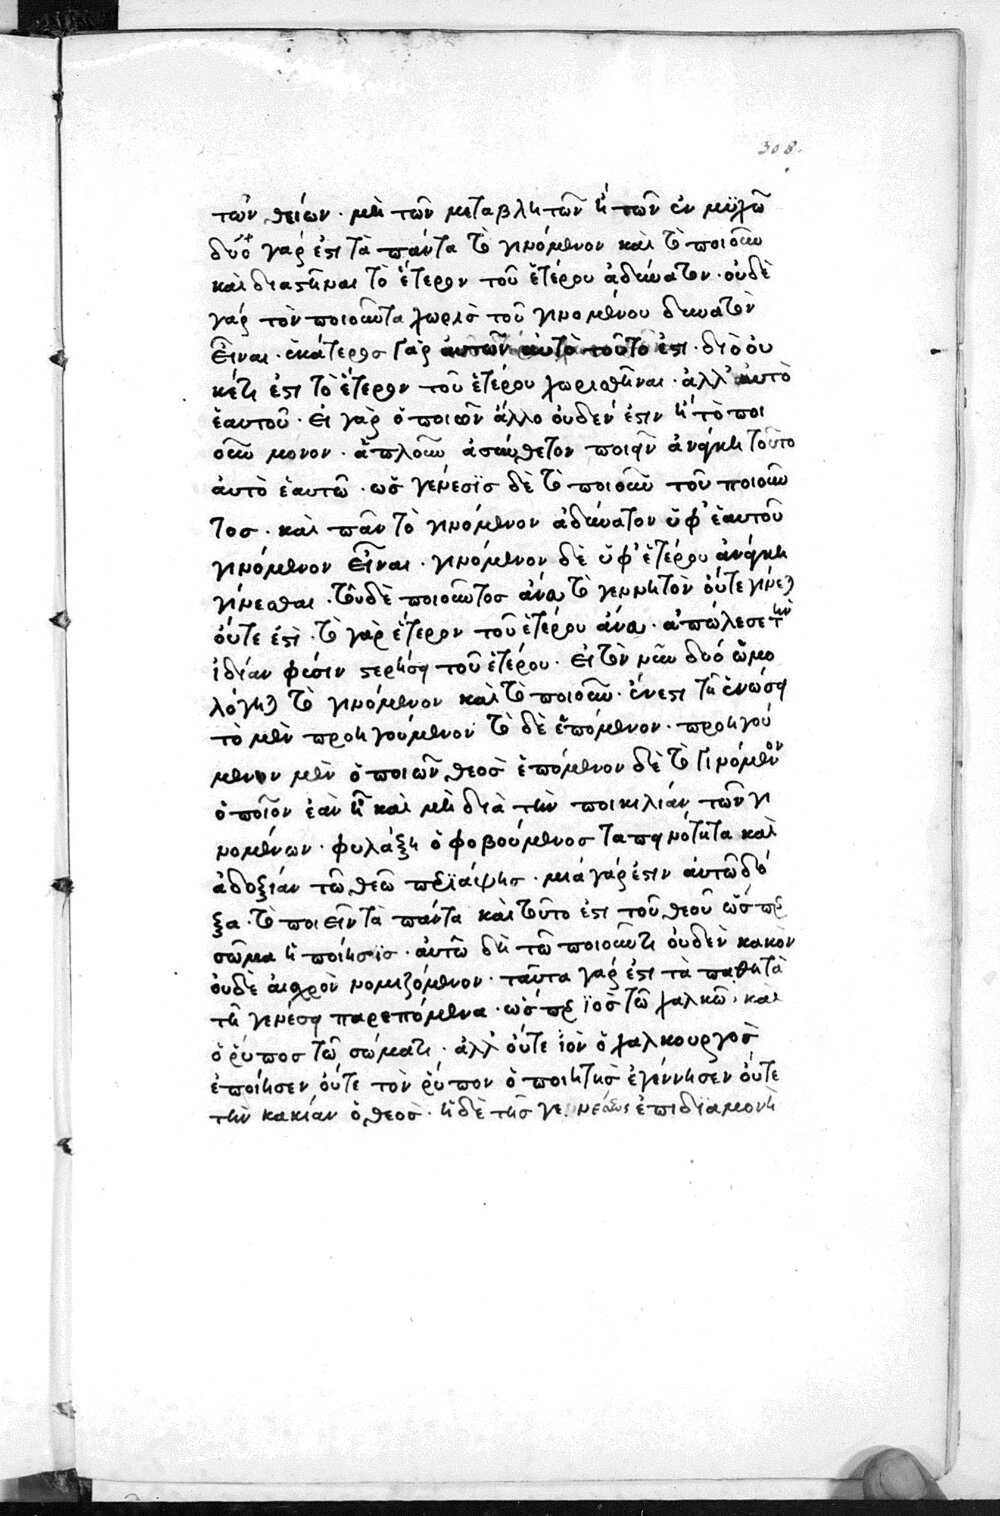 308.
τῶν θείων· μὴ τῶν μεταβλητῶν ἢ τῶν ἐν μυχῶ
δύο γάρ ἐστι τὰ πάντα τὸ γινόμενον καὶ τὸ ποιοῦν
καὶ διαστῆναι τὸ ἕτερον τοῦ ἑτέρου ἀδύνατον· οὐδὲ
γὰρ τὸν ποιοῦντα χωρὶς τοῦ γινομένου δυνατὸν
εἶναι· ἑκάτερος γὰρ αὐτῶν αὐτὸ τοῦτό ἐστι· διὸ οὐ
κέτι ἐστὶ τὸ ἕτερον τοῦ ἑτέρου χωρισθῆναι· ἀλλ' αὐτὸ
ἑαυτοῦ· εἰ γὰρ ὁ ποιῶν ἄλλο οὐδέν ἐστιν ἢ τὸ ποι
οῦν μόνον· ἁπλοῦν ἀσύνθετον ποιεῖν ἀνάγκη τοῦτο
αὐτὸ ἑαυτῶ· ὡς γένεσϊς δὲ τὸ ποιοῦν τοῦ ποιοῦν
τος· καὶ πᾶν τὸ γινόμενον ἀδύνατον ὑφ' ἑαυτοῦ
γινόμενον εἶναι· γινόμενον δὲ ὑφ' ἑτέρου ἀνάγκη
γίνεσθαι· τοῦ δὲ ποιοῦντος ἄνευ τὸ γεννητὸν οὔτε γίνεται
οὔτε ἐστὶ· τὸ γὰρ ἕτερον τοῦ ἑτέρου ἄνευ· ἀπώλεσε τὴν
ἰδίαν φύσιν στερήσει τοῦ ἑτέρου· εἰ τὸν νῦν δυό ὡμο
λόγηται τὸ γινόμενον καὶ τὸ ποιοῦν· ἕν ἐστι τῆ ἑνώσει
τὸ μὲν προηγούμενον τὸ δὲ ἑπόμενον· προηγού
μενον μὲν ὁ ποιῶν θεὸς ἑπόμενον δὲ τὸ γινόμενον
ὁποῖον ἐὰν ἦ καὶ μὴ διὰ τὴν ποικιλίαν τῶν γι
νομένων· φυλάξη ὁ φοβούμενος ταπεινότητα καὶ
ἀδοξίαν τῶ θεῶ περϊάψης· μία γάρ ἐστιν αὐτῶ δό
ξα· τὸ ποιεῖν τὰ πάντα καὶ τοῦτο ἐστι τοῦ θεοῦ ὥσπερ
σῶμα ἡ ποίησϊς· αὐτῶ δὴ τῶ ποιοῦντι οὐδὲν κακὸν
οὐδὲ αἰσχρὸν νομιζόμενον· ταῦτα γάρ ἐστι τὰ παθητὰ
τῆ γενέσει παρεπόμενα· ὥσπερ ϊὸς τῶ χαλκῶ· καὶ
ὁ ῥύπος τῶ σώματι· ἀλλ' οὔτε ἰὸν ὁ χαλκουργὸς
ἐποίησεν οὔτε τὸν ῥύπον ὁ ποιητὴς ἐγέννησεν οὔτε
τὴν κακίαν ὁ θεὸς· ἡ δὲ τῆς γενέσεως ἐπιδϊαμονὴ